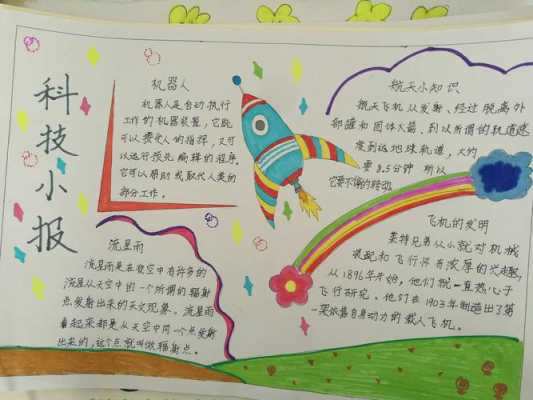 科技小报
机器人
机器人是自动执行
工作的机器装置,它既
可以接受人的指挥,又可
以运行预先编排的程序。
它可以帮助或取代人类的
部分工作。
航天小知识
航天飞机从发射、经过脱离外
部罐和固体火箭、到以所谓的轨道速
度到达地球轨道,大约
要8.5分钟 所以
它要不停的转动
流星雨
流星雨是在夜空中有许多的
流星从天空中的一个所谓的辐射
点发射出来的天文现象。流星雨
看起来都是从天空中同一个点发射
出来的,这个点就叫做辐射点。
飞机的发明
莱特兄弟从小就对机械
装配和飞行怀有浓厚的兴趣,
从1896年开始,他们就一直热心于
飞行研究。他们在1903年制造出了第
一架依靠自身动力的载人飞机。